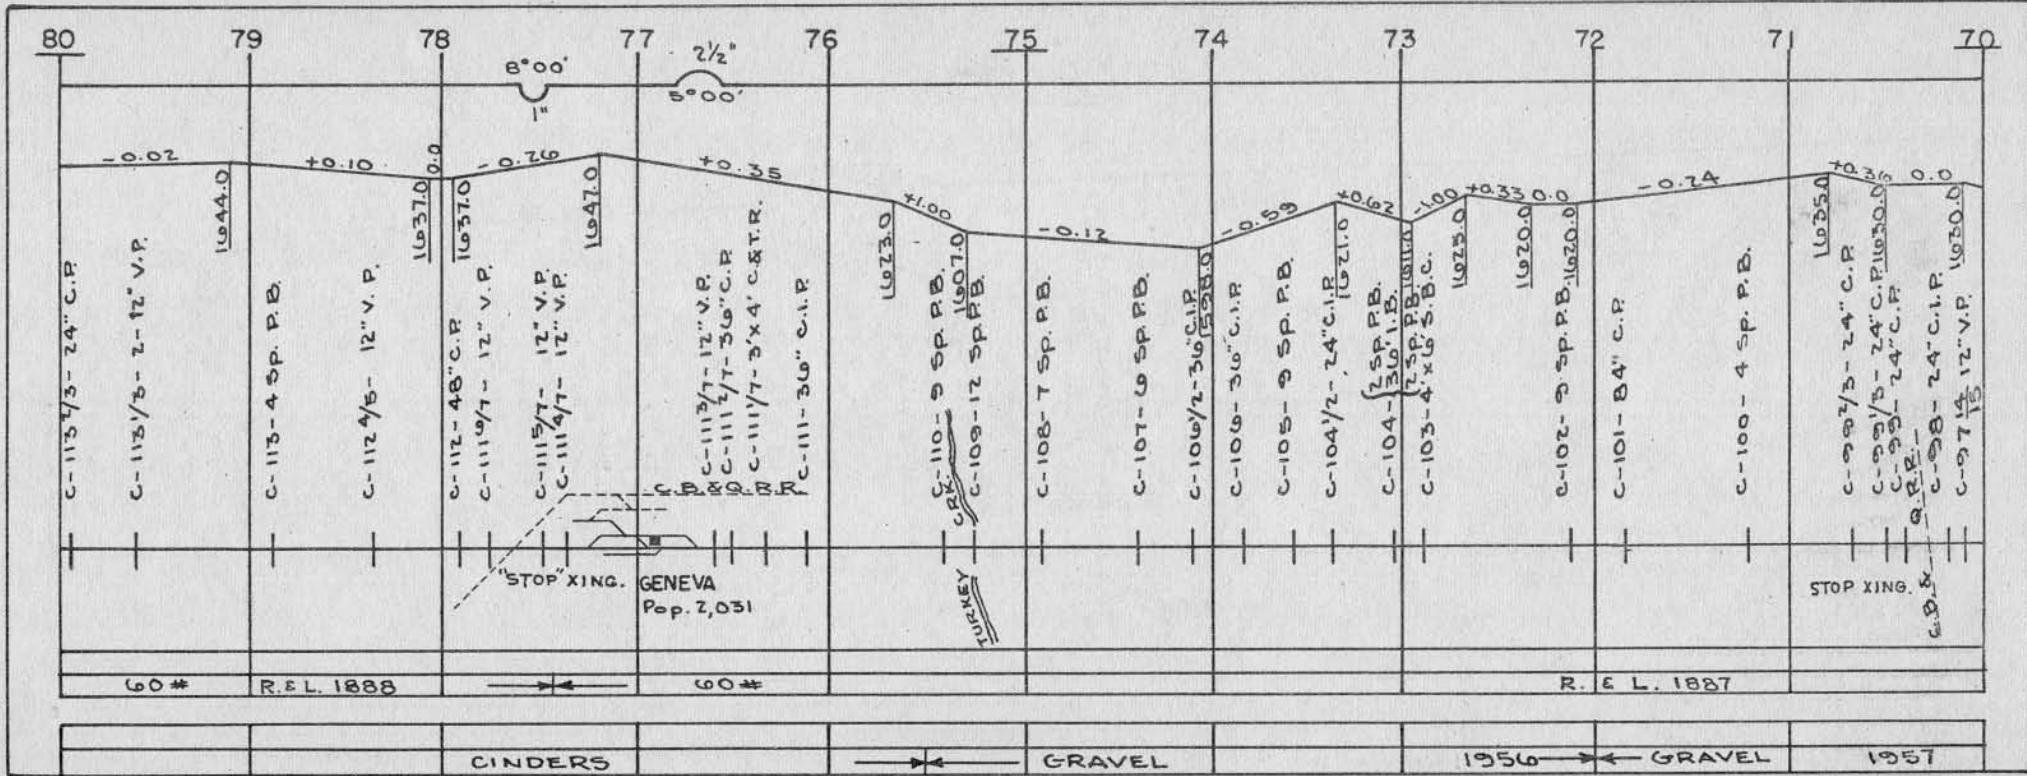 80 79 78 77 76 75 74 73 72 71 70
8°00'
1"
2½"
5°00'
-0.02 +0.10 0.0 -0.26 +0.35 +1.00 -0.12 -0.59 +0.62 -1.00 +0.33 0.0 -0.24 +0.36 0.0
1644.0
1637.0
1637.0
1647.0
1623.0
1607.0
1598.0
1621.0
1611.0
1625.0
1620.0
1620.0
1635.0
1630.0
1630.0
C-113 2/3 - 24" C.P.
C-113 1/3 - 2-12" V.P.
C-113 - 4 Sp. P.B.
C-112 4/5 - 12" V.P.
C-112 - 48" C.P.
C-111 6/7 - 12" V.P.
C-111 5/7 - 12" V.P.
C-111 4/7 - 12" V.P.
C-111 3/7 - 12" V.P.
C-111 2/7 - 36" C.P.
C-111 1/7 - 3'x4' C.&T.R.
C-111 - 36" C.I.P.
C-110 - 9 Sp. P.B.
C-109 - 12 Sp. P.B.
C-108 - 7 Sp. P.B.
C-107 - 6 Sp. P.B.
C-106 1/2 - 36" C.I.P.
C-106 - 36" C.I.P.
C-105 - 9 Sp. P.B.
C-104 1/2 - 24" C.I.P.
C-104 - {2 Sp. P.B.
36' I.B.
2 Sp. P.B.
C-103 - 4'x6' S.B.C.
C-102 - 9 Sp. P.B.
C-101 - 84" C.P.
C-100 - 4 Sp. P.B.
C-99 2/3 - 24" C.P.
C-99 1/3 - 24" C.P.
C-99 - 24" C.P.
C-98 - 24" C.I.P.
C-97 14/15 12" V.P.
C.B.&Q.R.R.
TURKEY CRK.
C.B.& Q.R.R.
"STOP" XING. GENEVA
Pop. 2,031
STOP XING.
60# R.&L. 1888 60# R.&L. 1887
CINDERS GRAVEL 1956 GRAVEL 1957